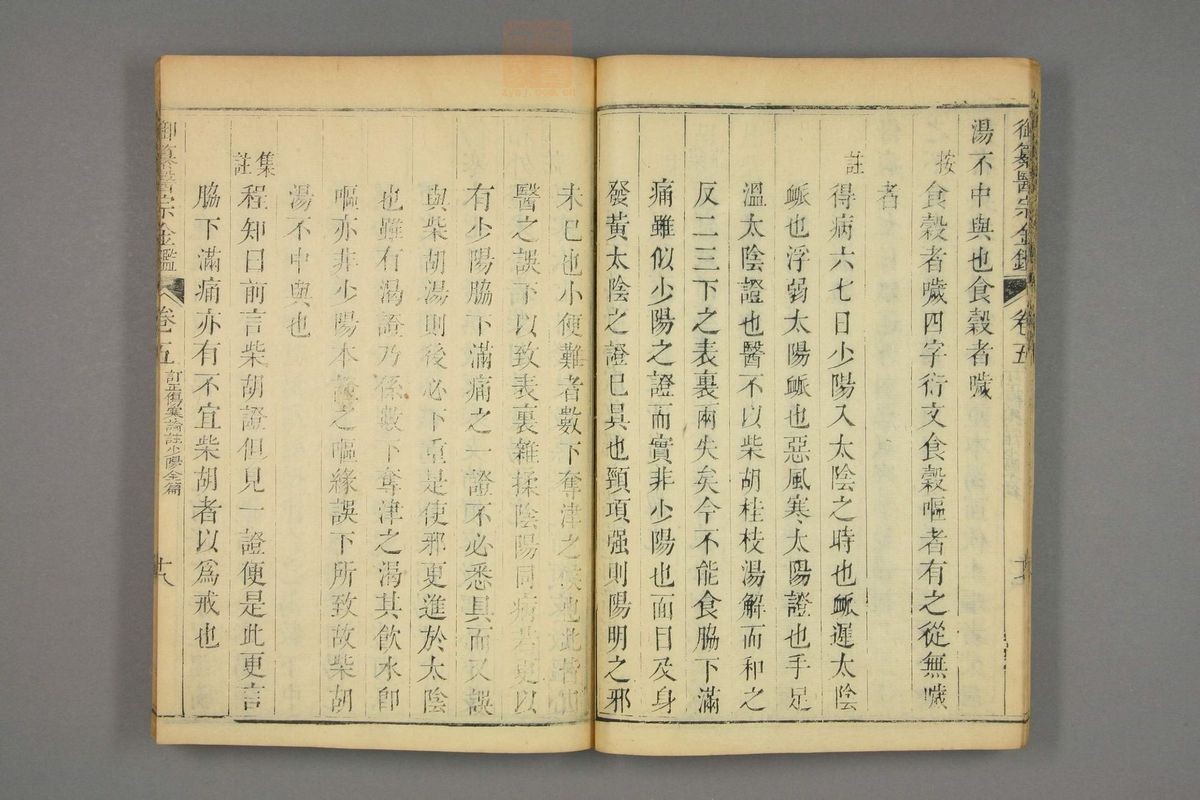 御纂醫宗金鑑 卷五
湯不中與也食穀者噦
按 食穀者噦四字衍文食穀嘔者有之從無噦
者
註 得病六七日少陽入太陰之時也䘑遲太陰
䘑也浮弱太陽䘑也惡風寒太陽證也手足
溫太陰證也醫不以柴胡桂枝湯解而和之
反二三下之表裏兩失矣今不能食脇下滿
痛雖似少陽之證而實非少陽也面目及身
發黃太陰之證已具也頸項强則陽明之邪
未已也小便難者數下奪津之候也此皆由
醫之誤下以致表裏雜揉陰陽同病若更以
有少陽脇下滿痛之一證不必悉具而又誤
與柴胡湯則後必下重是使邪更進於太陰
也雖有渴證乃係數下奪津之渴其飲水卽
嘔亦非少陽本證之嘔緣誤下所致故柴胡
湯不中與也
集註 程知曰前言柴胡證但見一證便是此更言
脇下滿痛亦有不宜柴胡者以爲戒也
御纂醫宗金鑑 卷五 訂正傷寒論註少陽全篇 十八